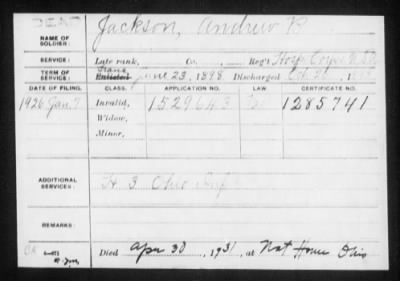 DEAD
NAME OF SOLDIER: Jackson, Andrew B
SERVICE: Late rank, Co., Reg't Hosp Corps U.S.A
TERM OF SERVICE: Trans Enlisted June 23, 1898 Discharged Oct
DATE OF FILING. CLASS. APPLICATION NO. LAW CERTIFICATE NO.
1926 Jan. 7 Invalid, 1529643 1285741
Widow,
Minor,
ADDITIONAL SERVICES: H 3 Ohio Inf
REMARKS:
Died Apr 30, 1931, at Nat Home Ohio